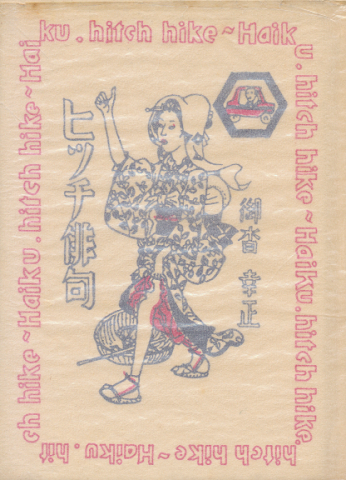 ku . hitch hike ~ Haik
u . hitch hike ~ Haiku . hitch hike .
hitch hike ~ Haiku . hit
ch hike ~ Haiku . hitch hike ~ Hai
ヒッチ俳句
御沓 幸正